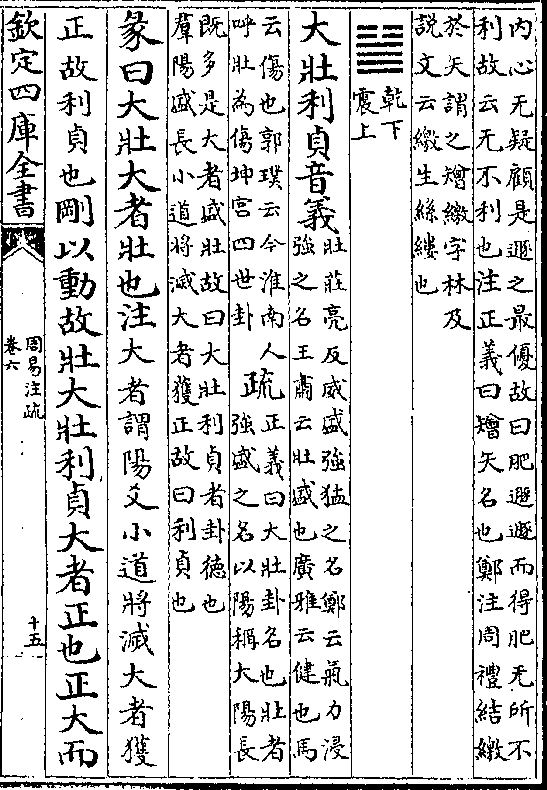 内心无疑顧是遯之最優故曰肥遯遯而得肥无所不
利故云无不利也注正義曰矰矢名也鄭注周禮結繳
於矢謂之矰繳字林及
説文云繳生絲縷也
乾下
震上
大壯利貞音義
壯莊亮反威盛強猛之名鄭云氣力浸
強之名王肅云壯盛也廣雅云健也馬
云傷也郭璞云今淮南人
呼壯為傷坤宫四世卦
疏
正義曰大壯卦名也壯者
強盛之名以陽稱大陽長
既多是大者盛壯故曰大壯利貞者卦德也
羣陽盛長小道將滅大者獲正故曰利貞也
彖曰大壯大者壯也注大者謂陽爻小道將滅大者獲
正故利貞也剛以動故壯大壯利貞大者正也正大而
欽定四庫全書
周易注疏
卷六
十五